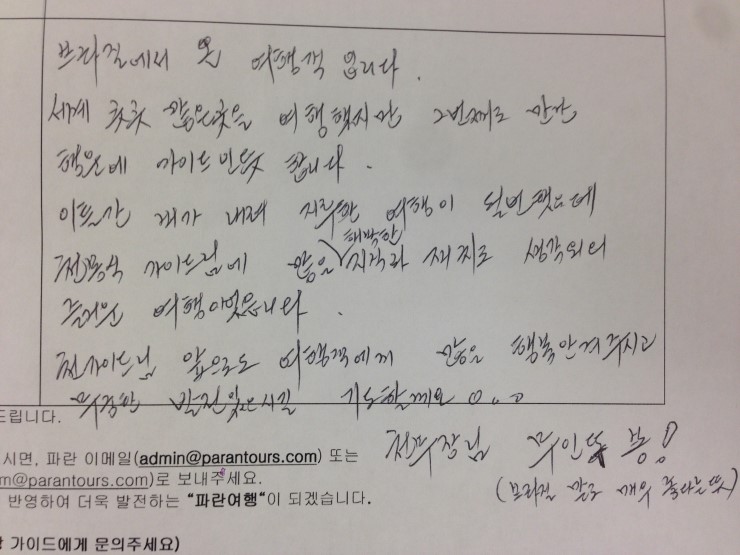 브라질에서 온 여행객 입니다.
세계 곳곳 많은곳을 여행했지만 2번째로 만난
행운에 가이드인듯 합니다.
이틀간 비가 내려 지루한 여행이 될번했는데
천 가이드님에 많은 해박한 지식과 재치로 생각외의
즐거운 여행이었습니다.
천가이드님 앞으로도 여행객에게 많은 행복안겨주시고
무궁한 발전있으시길 기도할께요 。。。
천부장님 무인또 봉!
(브라질 말로 매우 좋다는뜻)
드립니다.
시면, 파란 이메일(admin@parantours.com) 또는
m@parantours.com)로 보내주세요.
반영하여 더욱 발전하는 "파란여행"이 되겠습니다.
가이드에게 문의주세요)